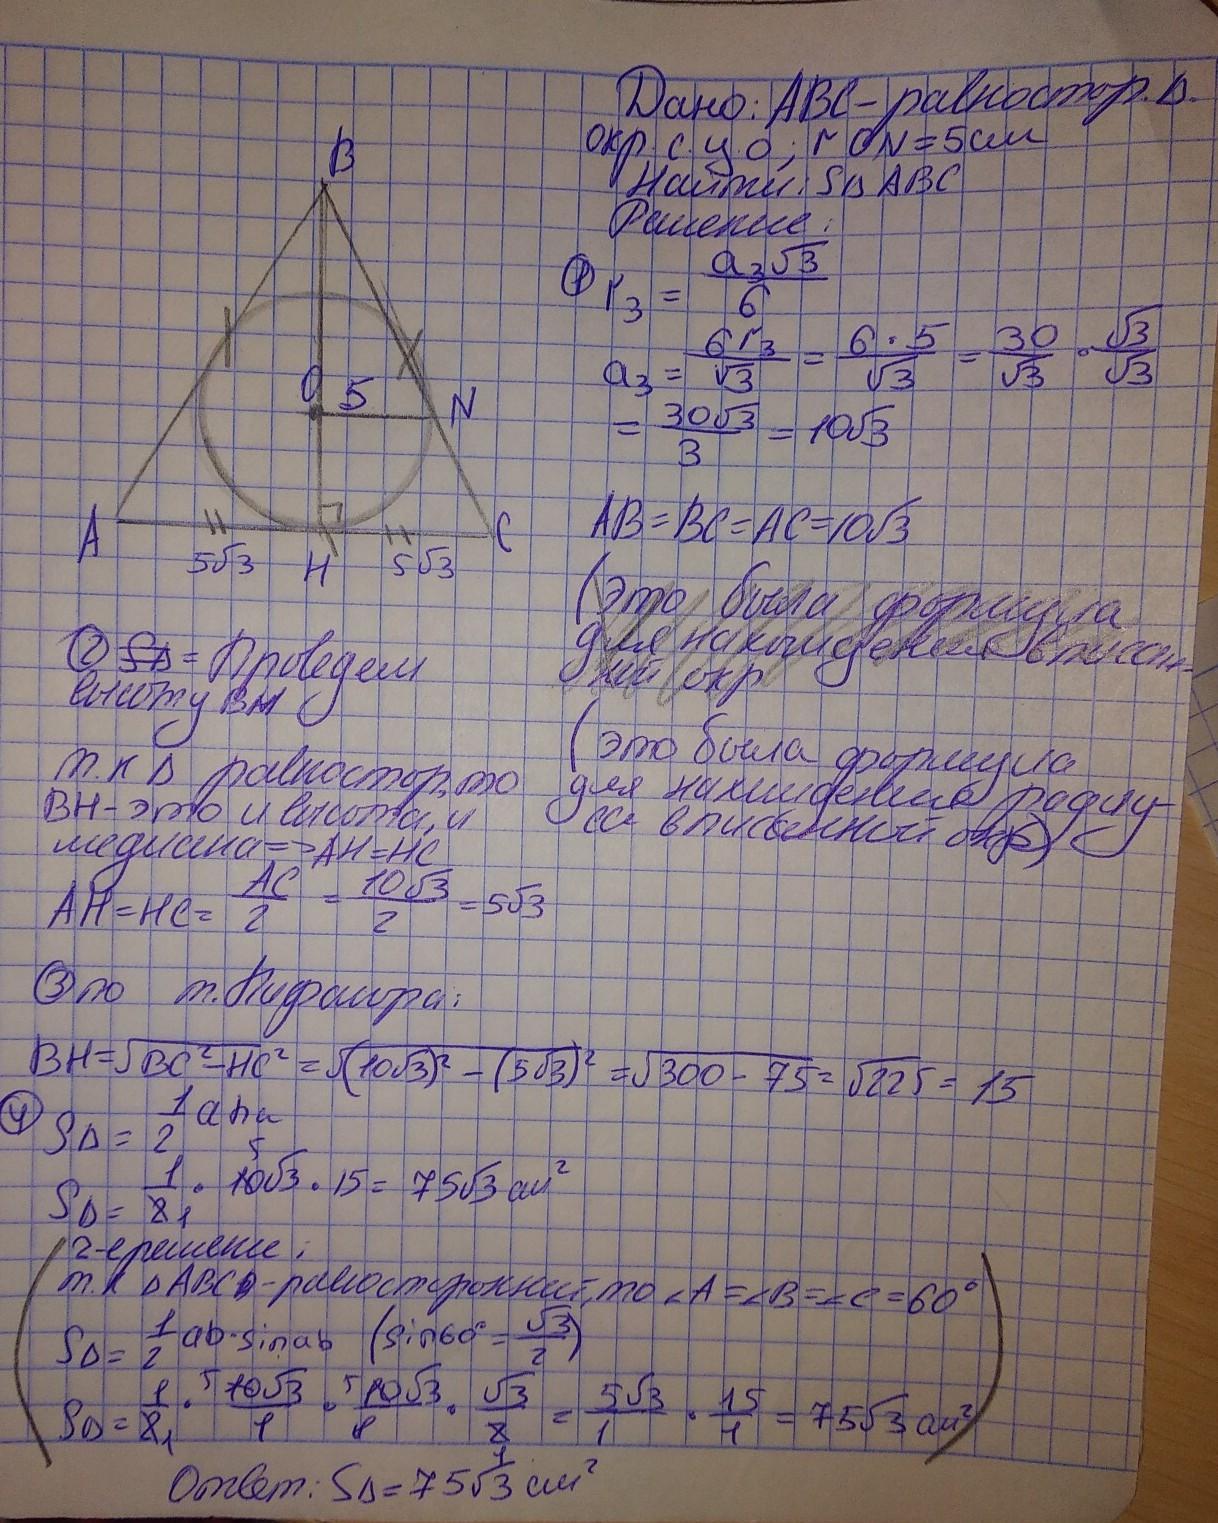 Дано: ABC - равностор. Δ.
окр. с ц. О; r ON = 5 см
Найти: SΔ ABC
Решение:
① r₃ = a₃√3/6
a₃ = 6r₃/√3 = 6·5/√3 = 30/√3 · √3/√3
= 30√3/3 = 10√3
AB = BC = AC = 10√3
(это была формула
для нахождения вписан-
ной окр
(это была формула
для нахождения радиу-
са вписанной окр)
B
O 5 N
A C
5√3 H 5√3
② SΔ = Проведем
высоту BH
т.к Δ равностор, то
BH - это и высота, и
медиана => AH = HC
AH = HC = AC/2 = 10√3/2 = 5√3
③ по т. Пифагора:
BH = √BC² - HC² = √(10√3)² - (5√3)² = √300 - 75 = √225 = 15
④ SΔ = 1/2 aha
SΔ = 1/2 · 10√3 · 15 = 75√3 см²
2-е решение:
т.к Δ ABC - равносторонний, то ∠A = ∠B = ∠C = 60°
SΔ = 1/2 ab · sin ab (sin 60° = √3/2)
SΔ = 1/2 · 10√3/1 · 10√3/1 · √3/2 = 5√3/1 · 15/1 = 75√3 см²
Ответ: SΔ = 75√3 см²